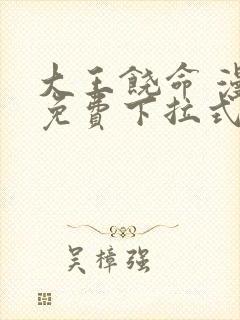 大王饶命 漫
免费下拉式
吴樟强